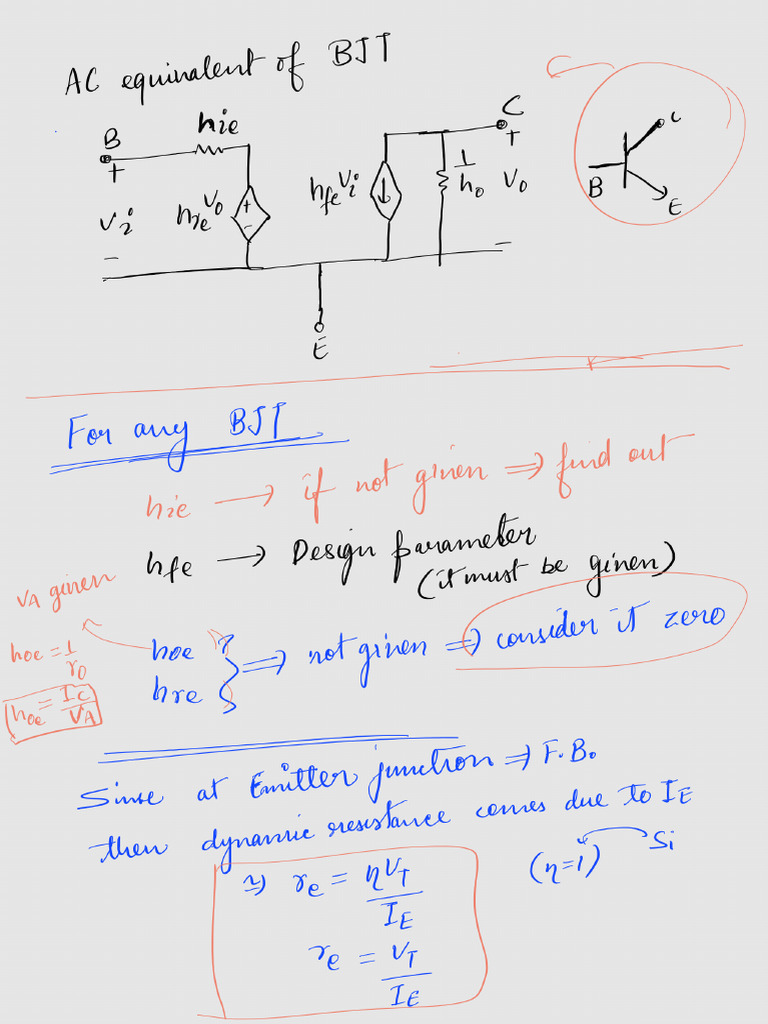 AC equivalent of BJT
B
+
Vi
-
hie
hre Vo
+
-
hfe Vi
1
ho
C
+
Vo
-
E
B
C
E
For any BJT
hie → if not given ⇒ find out
hfe → Design parameter
(it must be given)
VA given
hoe = 1
ro
hoe = IC
VA
hoe
hre
} ⇒ not given ⇒ consider it zero
Sinse at Emitter junction ⇒ F.B.
then dynamic resistance comes due to IE
⇒ re = ηVT
IE
(η=1) Si
re = VT
IE